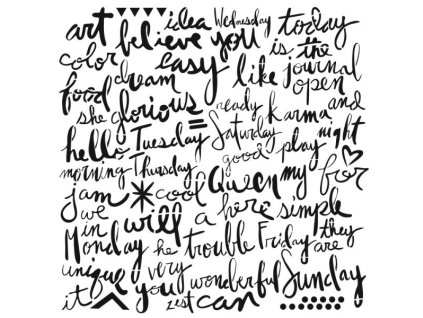 art idea Wednesday today
believe you is the
color easy like journal
food dream open
she glorious ready karma and
hello Tuesday Saturday play night
morning Thursday good for
jam cool Queen my
we will a here simple
in
Monday he trouble Friday they
are
unique very wonderful Sunday
it you zest can